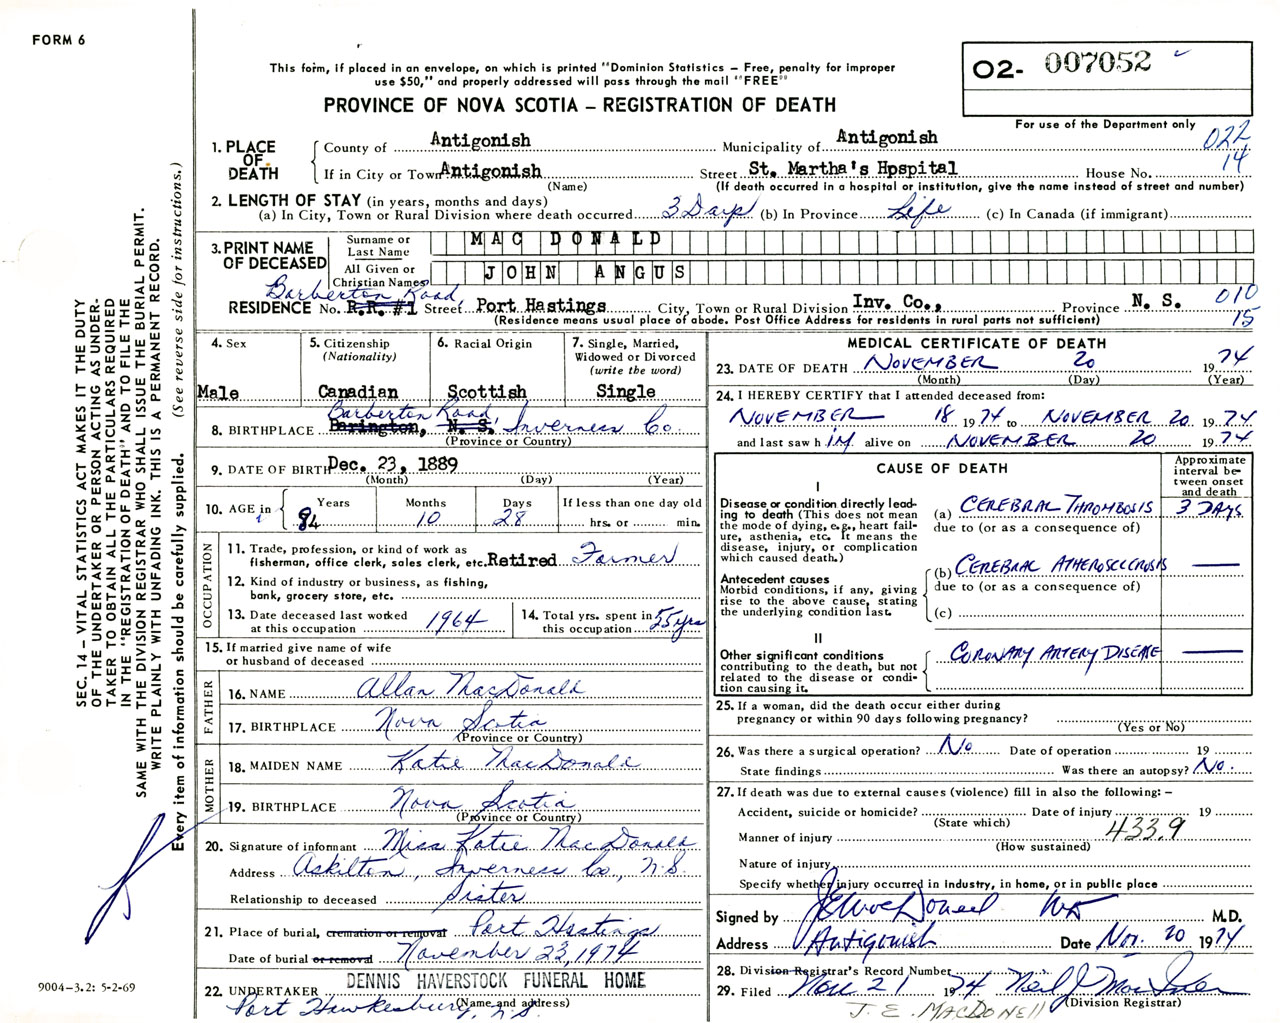 FORM 6
This form, if placed in an envelope, on which is printed "Dominion Statistics – Free, penalty for improper
use $50," and properly addressed will pass through the mail "FREE"
PROVINCE OF NOVA SCOTIA – REGISTRATION OF DEATH
02- 007052
For use of the Department only
022
14
1. PLACE OF DEATH
County of Antigonish Municipality of Antigonish
If in City or Town Antigonish Street St. Martha's Hpspital House No.
(Name) (If death occurred in a hospital or institution, give the name instead of street and number)
2. LENGTH OF STAY (in years, months and days)
(a) In City, Town or Rural Division where death occurred 3 Days (b) In Province Life (c) In Canada (if immigrant)
3. PRINT NAME OF DECEASED
Surname or Last Name MAC DONALD
All Given or Christian Names JOHN ANGUS
Barberton Road,
RESIDENCE No. R.R. #1 Street Port Hastings City, Town or Rural Division Inv. Co., Province N. S. 010
15
(Residence means usual place of abode. Post Office Address for residents in rural parts not sufficient)
4. Sex
Male
5. Citizenship
(Nationality)
Canadian
6. Racial Origin
Scottish
7. Single, Married,
Widowed or Divorced
(write the word)
Single
Barberton Road,
8. BIRTHPLACE Barington, N. S. Inverness Co.
(Province or Country)
9. DATE OF BIRTH Dec. 23, 1889
(Month) (Day) (Year)
10. AGE in
Years Months Days If less than one day old
84 10 28 hrs. or min.
OCCUPATION
11. Trade, profession, or kind of work as
fisherman, office clerk, sales clerk, etc. Retired Farmer
12. Kind of industry or business, as fishing,
bank, grocery store, etc.
13. Date deceased last worked
at this occupation 1964
14. Total yrs. spent in
this occupation 55 yrs
15. If married give name of wife
or husband of deceased
FATHER
16. NAME Allan MacDonald
17. BIRTHPLACE Nova Scotia
(Province or Country)
MOTHER
18. MAIDEN NAME Katie MacDonald
19. BIRTHPLACE Nova Scotia
(Province or Country)
20. Signature of informant Miss Katie MacDonald
Address Askilton, Inverness Co., N.S.
Relationship to deceased Sister
21. Place of burial, cremation or removal Port Hastings
Date of burial or removal November 23, 1974
DENNIS HAVERSTOCK FUNERAL HOME
22. UNDERTAKER
(Name and address)
Port Hawkesbury, N.S.
MEDICAL CERTIFICATE OF DEATH
23. DATE OF DEATH NOVEMBER 20 1974
(Month) (Day) (Year)
24. I HEREBY CERTIFY that I attended deceased from:
NOVEMBER 18 1974 to NOVEMBER 20 1974
and last saw h IM alive on NOVEMBER 20 1974
CAUSE OF DEATH
Approximate
interval be-
tween onset
and death
I
Disease or condition directly lead-
ing to death (This does not mean
the mode of dying, e.g., heart fail-
ure, asthenia, etc. It means the
disease, injury, or complication
which caused death.)
(a) CEREBRAL THROMBOSIS 3 DAYS
due to (or as a consequence of)
Antecedent causes
Morbid conditions, if any, giving
rise to the above cause, stating
the underlying condition last.
(b) CEREBRAL ATHEROSCLEROSIS
due to (or as a consequence of)
(c)
II
Other significant conditions
contributing to the death, but not
related to the disease or condi-
tion causing it.
CORONARY ARTERY DISEASE
25. If a woman, did the death occur either during
pregnancy or within 90 days following pregnancy?
(Yes or No)
26. Was there a surgical operation? No Date of operation 19
State findings Was there an autopsy? No.
27. If death was due to external causes (violence) fill in also the following: –
Accident, suicide or homicide? Date of injury 19
(State which)
433.9
Manner of injury
(How sustained)
Nature of injury
Specify whether injury occurred in industry, in home, or in public place
Signed by J E MacDonell M.D.
Address Antigonish Date Nov. 20 1974
28. Division Registrar's Record Number
29. Filed Nov 21 1974 Neil J.
(Division Registrar)
J. E. MACDONELL
SEC. 14 – VITAL STATISTICS ACT MAKES IT THE DUTY
OF THE UNDERTAKER OR PERSON ACTING AS UNDER-
TAKER TO OBTAIN ALL THE PARTICULARS REQUIRED
IN THE "REGISTRATION OF DEATH" AND TO FILE THE
SAME WITH THE DIVISION REGISTRAR WHO SHALL ISSUE THE BURIAL PERMIT.
WRITE PLAINLY WITH UNFADING INK. THIS IS A PERMANENT RECORD.
Every item of information should be carefully supplied. (See reverse side for instructions.)
9004–3.2: 5-2-69